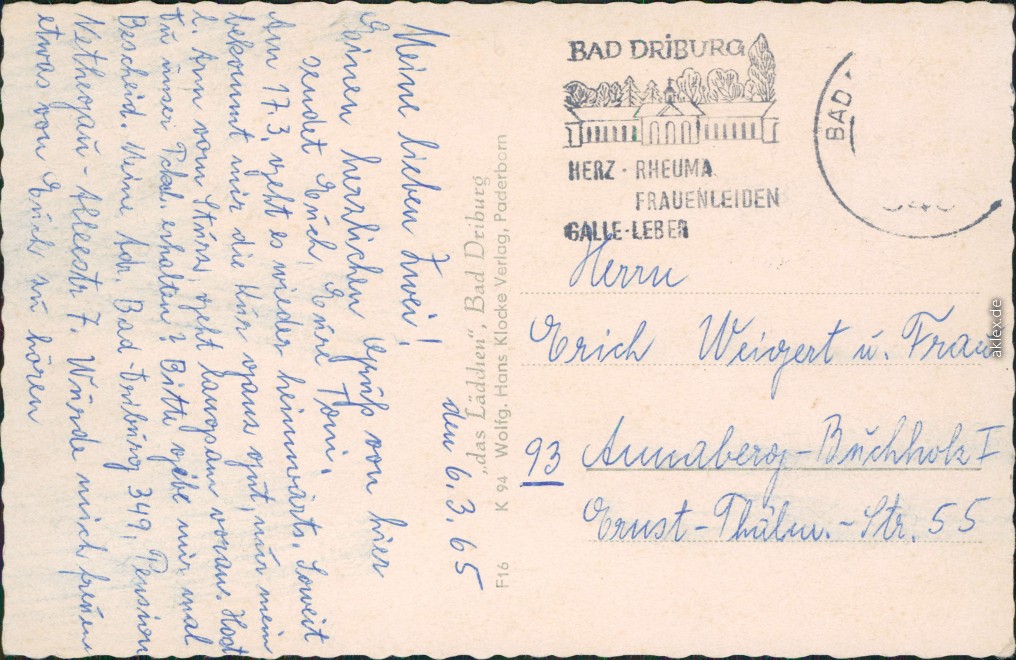 den 6.3.65
Meine lieben Zwei!
Einen herzlichen Gruß von hier
sendet Euch, Eure Toni.
Am 17.3. geht es wieder heimwärts. Soweit
bekommt mir die Kur ganz gut, nur mein
l. Arm vom Sturz, geht langsam voran. Hast
Du unser Pckl. erhalten? Bitte gebe mir mal
Bescheid. Meine Adr. Bad-Driburg 349, Pension
Nethegau-Alleestr 7. Würde mich freuen
etwas von Euch zu hören
„das Lädchen", Bad Driburg
F16 K 94 Wolfg. Hans Klocke Verlag, Paderborn
BAD DRIBURG
HERZ - RHEUMA
FRAUENLEIDEN
GALLE-LEBER
BAD
Herrn
Erich Weigert u. Frau
93 Annaberg-Buchholz I
Ernst-Thälm.-Str. 55
aklex.de